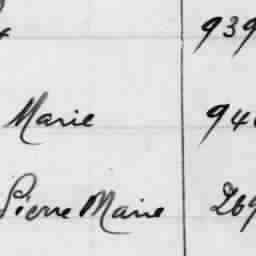 939
Marie 94
Pierre Marie 269